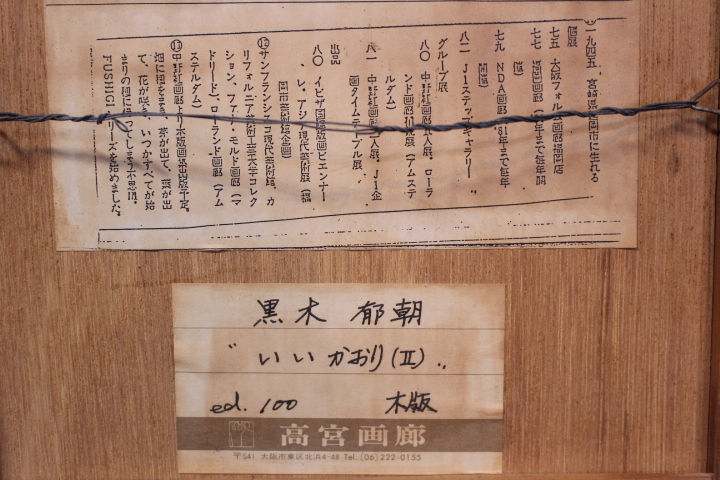 一九四五、宮崎県延岡市に生れる
個展
七五 大阪フォルム画廊福岡店
七七 福岡画廊(
七九 NDA画廊、'81年まで毎年
開催
八二 J1ステップギャラリー
グループ展
八〇 中野紅画廊五人展、ローラ
ンド画廊 展(アムステ
ルダム)
八一 中野紅画廊 人展、J1企
画タイムテーブル展
出品
八〇 イビザ国際版画ビエンナー
レ、アジア現代美術展(福
岡市美術館企画)
⑫サンフランシスコ現代美術館、カ
リフォルニア美術工芸大学コレク
ション、ファト・モルド画廊(マ
ドリード)、ローランド画廊(アム
ステルダム)
⑬中野紅画廊よりオリ 木版画集出版予定。
畑に種をまき、芽が出て、葉が出
て、花が咲き、いつかすべてが始
まりの種に帰ってしまう不思議。
FUSHIGIシリーズを始めました。
黒木 郁朝
"いいかおり(II)"
ed. 100 木版
高宮画廊
〒541 大阪市東区北浜4-48 Tel.(06)222-0155